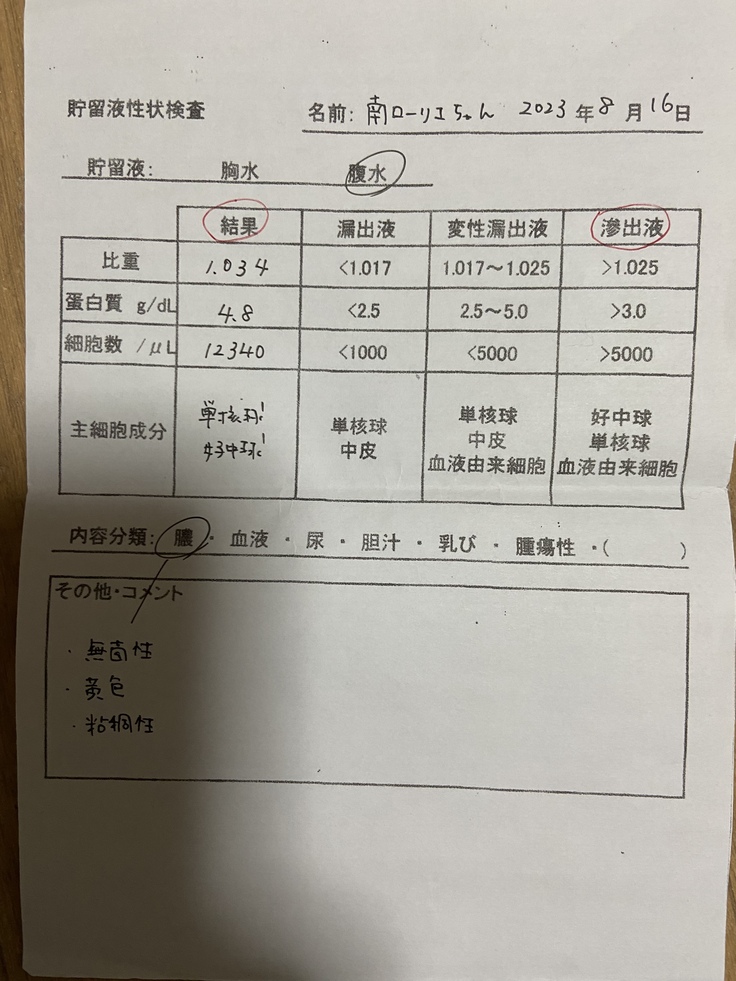 貯留液性状検査 名前: 南ローリエちゃん 2023年8月16日
貯留液: 胸水 腹水
結果 漏出液 変性漏出液 滲出液
比重 1.034 <1.017 1.017～1.025 >1.025
蛋白質 g/dL 4.8 <2.5 2.5～5.0 >3.0
細胞数 /μL 12340 <1000 <5000 >5000
主細胞成分 単核球! 好中球! 単核球 中皮 単核球 中皮 血液由来細胞 好中球 単核球 血液由来細胞
内容分類: 膿・血液・尿・胆汁・乳び・腫瘍性・( )
その他・コメント
・無菌性
・黄色
・粘稠性